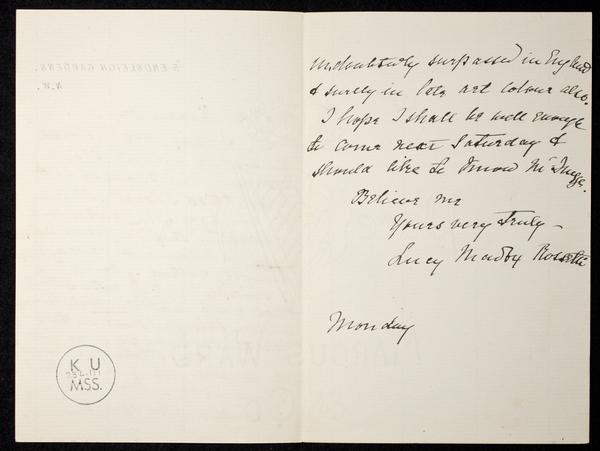 5 ENDSLEIGH GARDENS.
N.W.
undoubtedly surpassed in England
& surely in late art colour also.
I hope I shall be well enough
to come next Saturday &
should like to know Mr
Believe me
Yours very truly –
Lucy Madox Rossetti
Monday
MARCUS WARD
K U
MSS.